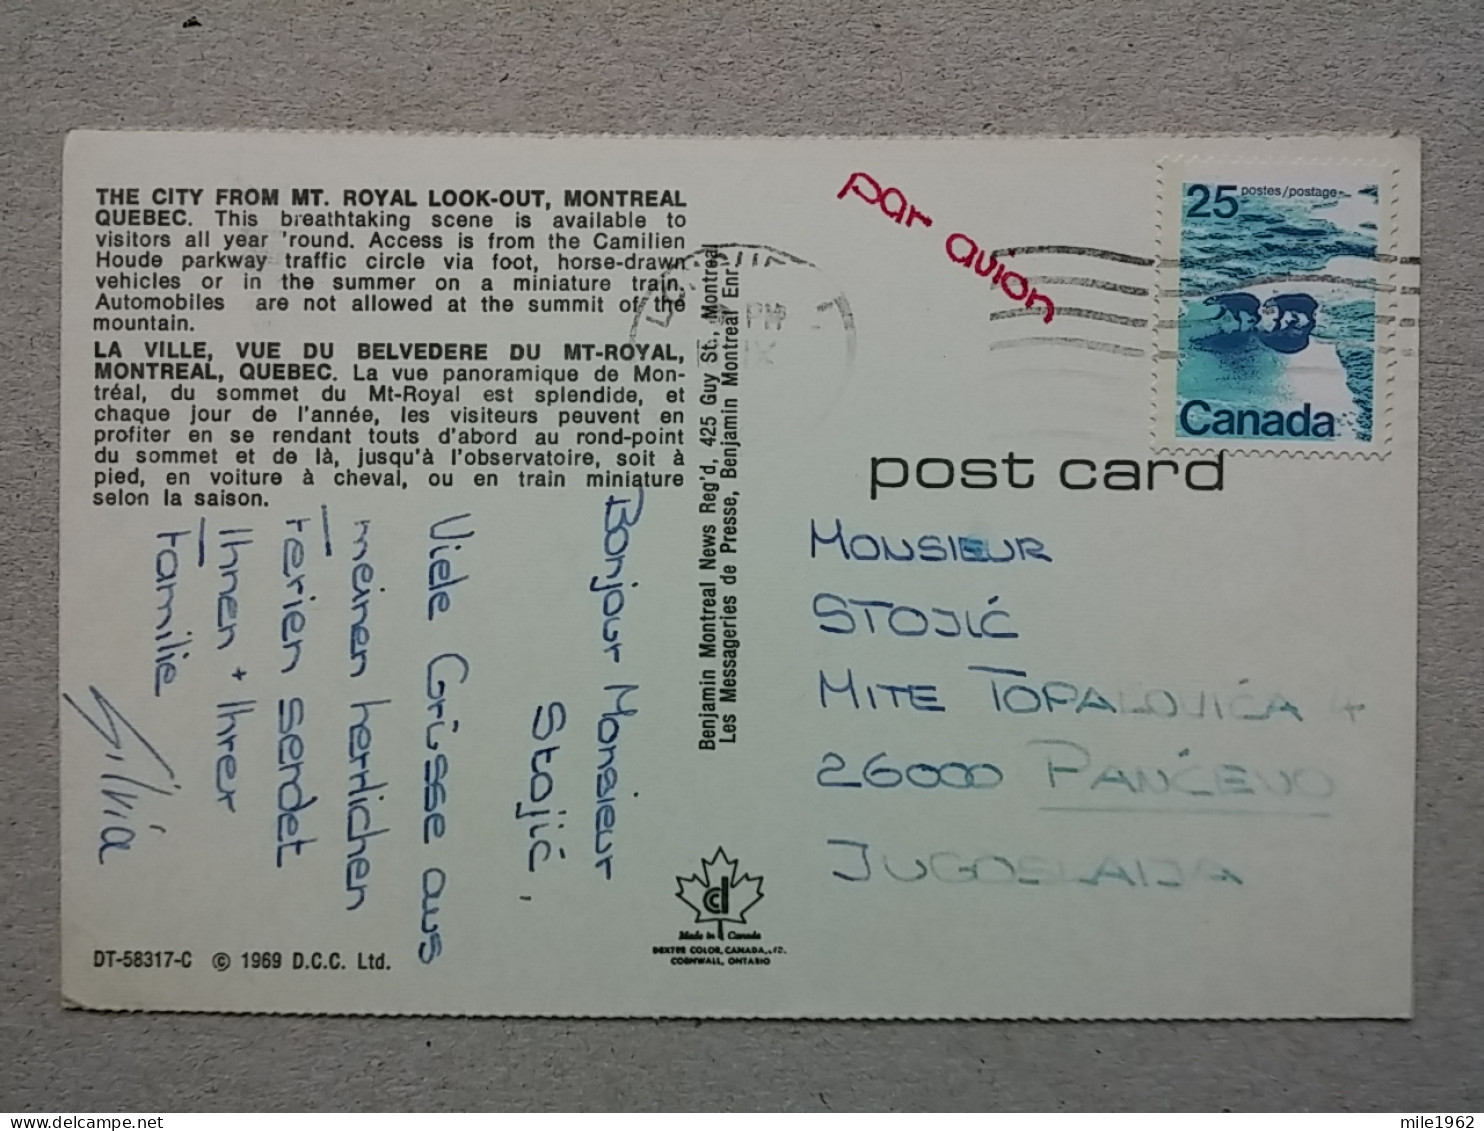 THE CITY FROM MT. ROYAL LOOK-OUT, MONTREAL
QUEBEC. This breathtaking scene is available to
visitors all year 'round. Access is from the Camilien
Houde parkway traffic circle via foot, horse-drawn
vehicles or in the summer on a miniature train.
Automobiles are not allowed at the summit of the
mountain.
LA VILLE, VUE DU BELVEDERE DU MT-ROYAL,
MONTREAL, QUEBEC. La vue panoramique de Mon-
tréal, du sommet du Mt-Royal est splendide, et
chaque jour de l'année, les visiteurs peuvent en
profiter en se rendant touts d'abord au rond-point
du sommet et de là, jusqu'à l'observatoire, soit à
pied, en voiture à cheval, ou en train miniature
selon la saison.
Bonjour Monsieur
Stojić,
Viele Grüsse aus
meinen herrlichen
Ferien sendet
Ihnen + Ihrer
Familie
Silvia
DT-58317-C © 1969 D.C.C. Ltd.
Benjamin Montreal News Reg'd, 425 Guy St., Montreal
Les Messageries de Presse, Benjamin Montreal Enr.
cd
Made in Canada
DEXTER COLOR, CANADA, LTD.
CORNWALL, ONTARIO
par avion
PM
IX
25 postes/postage
Canada
post card
MONSIEUR
STOJIĆ
MITE TOPALOVIĆA 4
26000 PANĆEVO
JUGOSLAIJA
mile1962